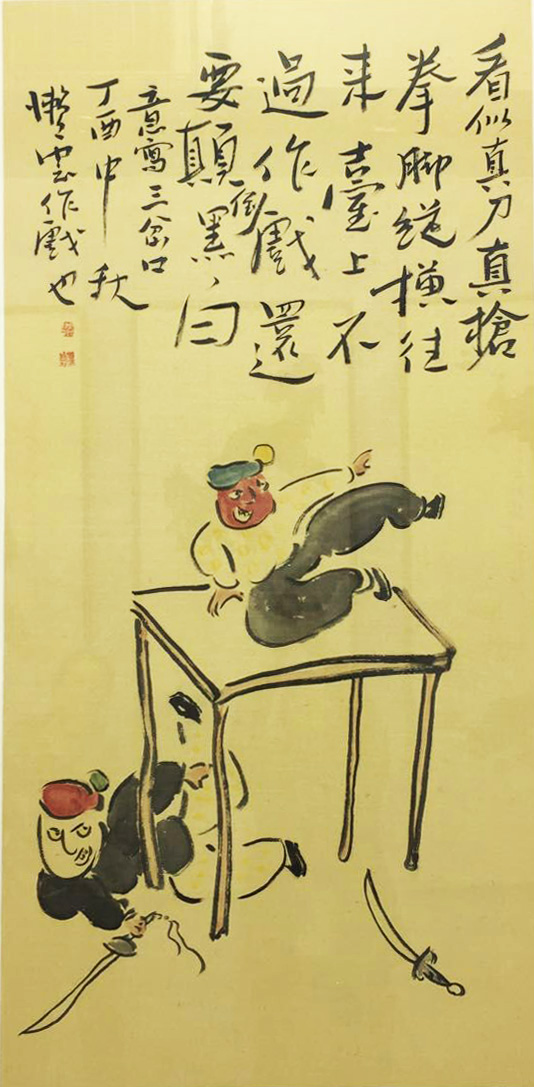 看似真刀真槍
拳脚縱橫往
来臺上不
過作戲還
要顛倒黑白
意寫三岔口
丁酉中秋
懶雲作戲也